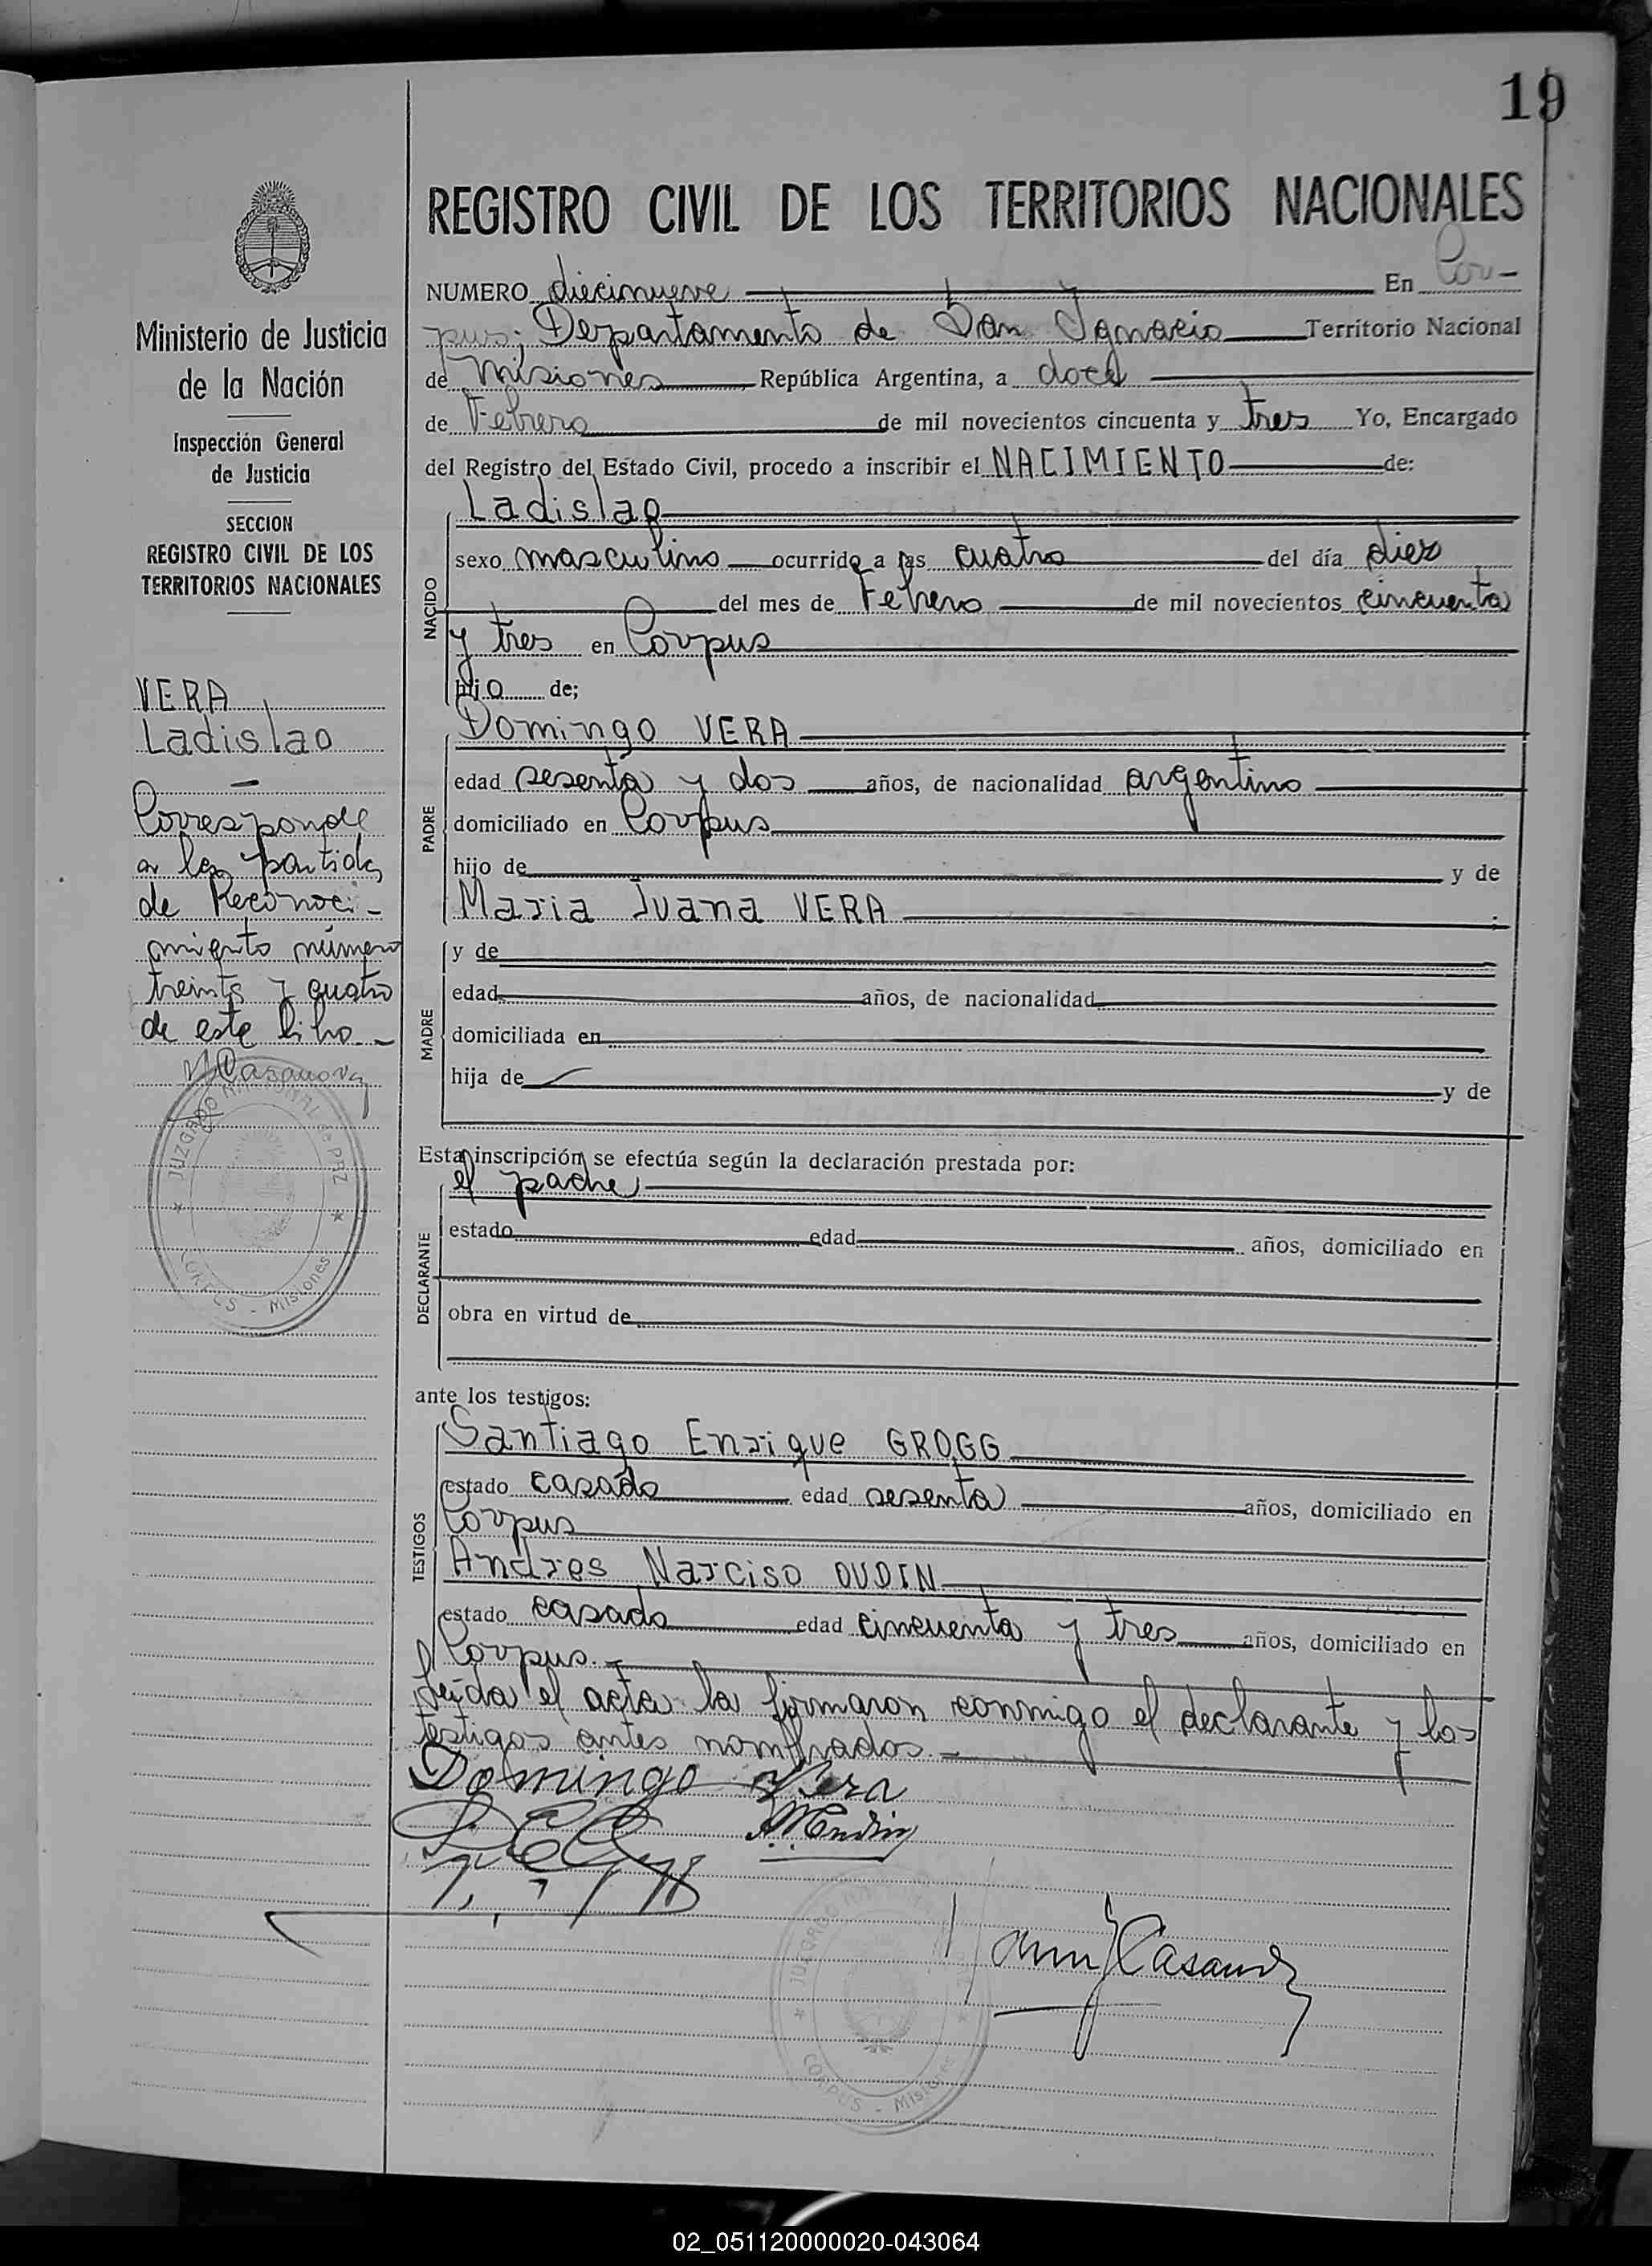 19
REGISTRO CIVIL DE LOS TERRITORIOS NACIONALES
Ministerio de Justicia
de la Nación
Inspección General
de Justicia
SECCION
REGISTRO CIVIL DE LOS
TERRITORIOS NACIONALES
VERA
Ladislao
Corresponde
a la partida
de Reconoci-
miento número
treinta y cuatro
de este libro.-
Casanova
JUZGADO NACIONAL de PAZ
CORPUS - Misiones
NUMERO diecinueve En Cor-
pus; Departamento de San Ignacio Territorio Nacional
de Misiones, República Argentina, a doce
de Febrero de mil novecientos cincuenta y tres Yo, Encargado
del Registro del Estado Civil, procedo a inscribir el NACIMIENTO de:
NACIDO
Ladislao
sexo masculino ocurrido a las cuatro del día diez
del mes de Febrero de mil novecientos cincuenta
y tres en Corpus
hijo de;
PADRE
Domingo VERA
edad sesenta y dos años, de nacionalidad argentino
domiciliado en Corpus
hijo de y de
Maria Juana VERA ;
MADRE
y de
edad años, de nacionalidad
domiciliada en
hija de y de
Esta inscripción se efectúa según la declaración prestada por:
DECLARANTE
el padre
estado edad años, domiciliado en
obra en virtud de
ante los testigos:
TESTIGOS
Santiago Enrique GROGG
estado casado edad sesenta años, domiciliado en
Corpus
Andres Narciso OUDIN
estado casado edad cincuenta y tres años, domiciliado en
Corpus.-
Leída el acta la firmaron conmigo el declarante y los
testigos antes nombrados.-
Domingo Vera
Casanova
JUZGADO
CORPUS - Misiones
02_051120000020-043064